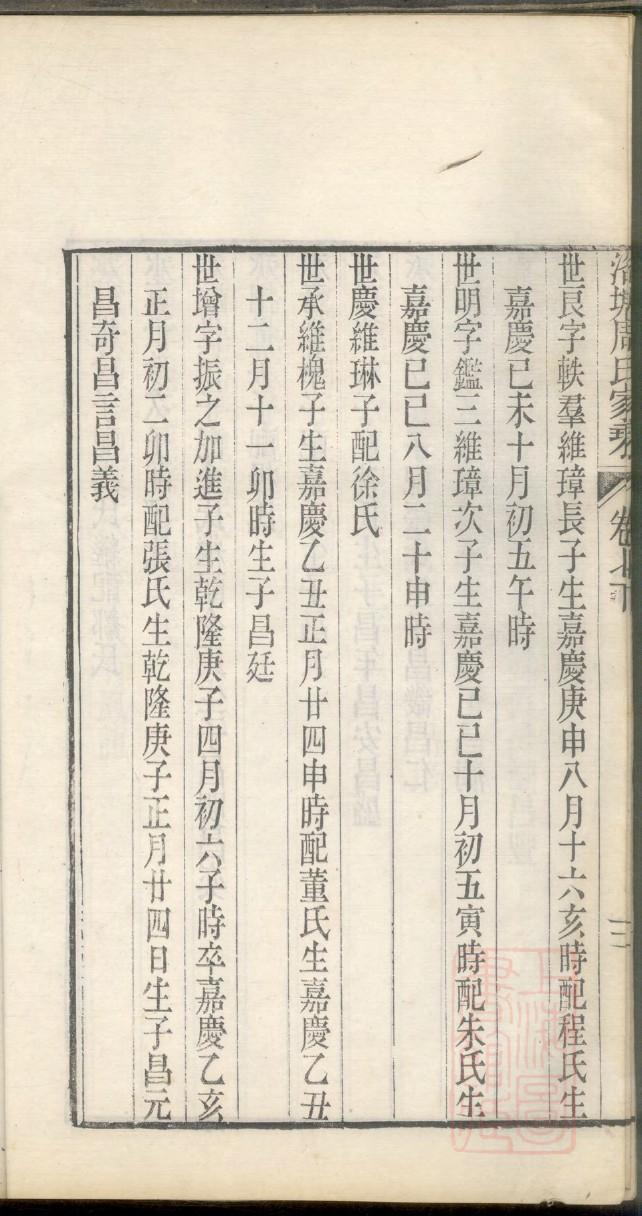 周氏家
世良字軼羣維璋長子生嘉慶庚申八月十六亥時配程氏生
嘉慶已未十月初五午時
世明字鑑三維璋次子生嘉慶已巳十月初五寅時配朱氏生
嘉慶已巳八月二十申時
世慶維琳子配徐氏
世承維槐子生嘉慶乙丑正月廿四申時配董氏生嘉慶乙丑
十二月十一卯時生子昌廷
世增字振之加進子生乾隆庚子四月初六子時卒嘉慶乙亥
正月初二卯時配張氏生乾隆庚子正月廿四日生子昌元
昌奇昌言昌義